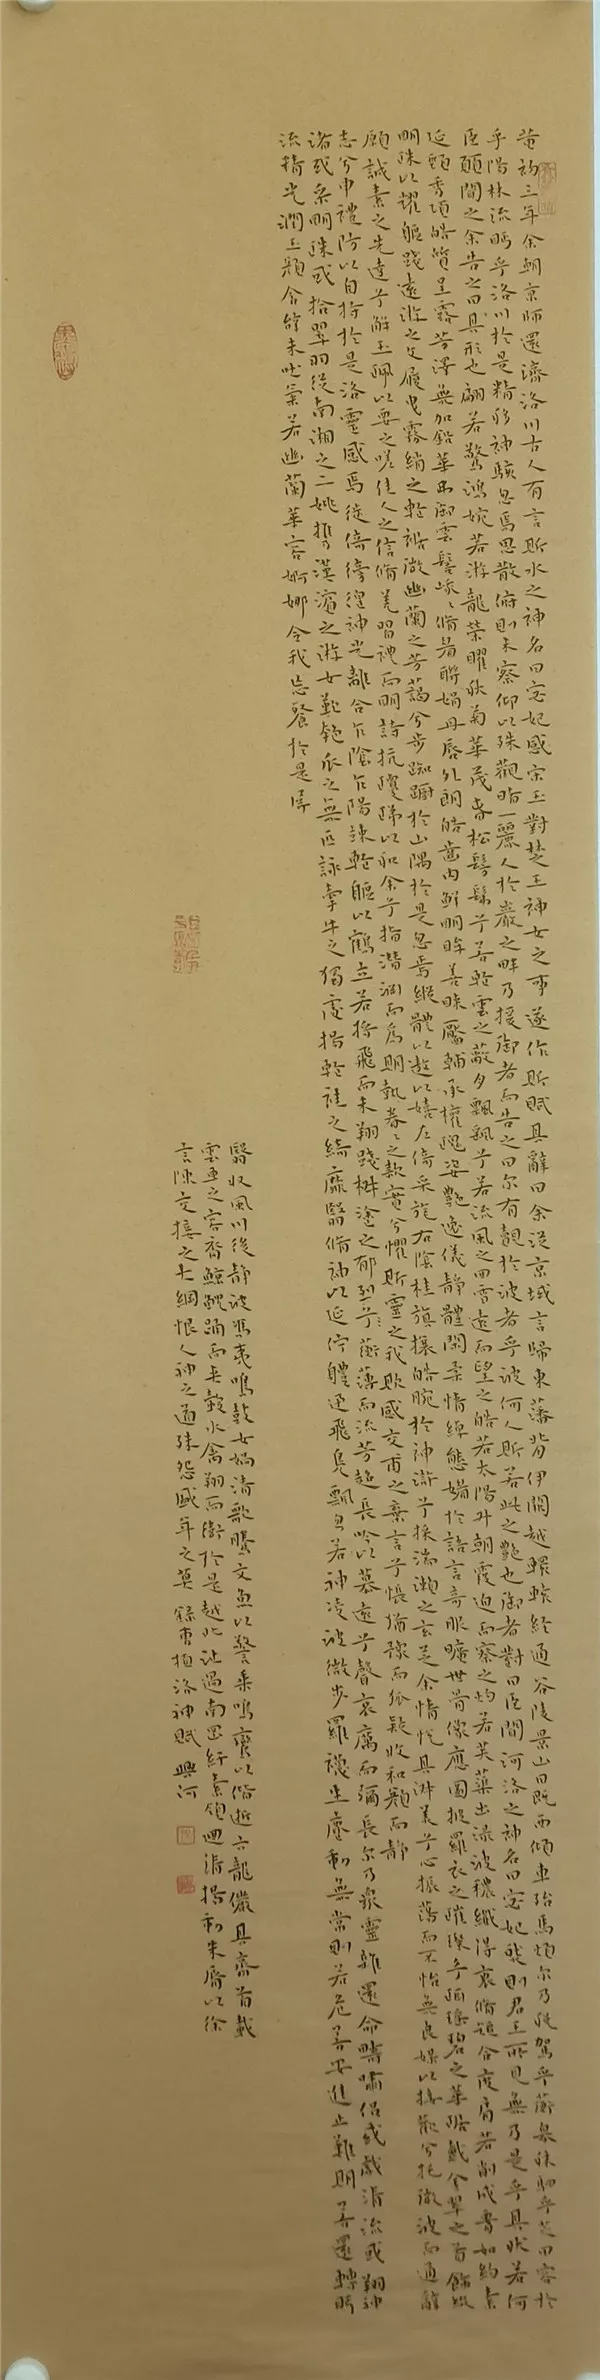 黄初三年余朝京師還濟洛川古人有言斯水之神名曰宓妃感宋玉對楚王神女之事遂作斯賦其辭曰余從京域言歸東藩背伊闕越轘轅經通谷陵景山日既西傾車殆馬煩尔乃稅駕乎蘅皋秣駟乎芝田容於
乎陽林流眄乎洛川於是精移神駭忽焉思散俯則未察仰以殊觀睹一麗人於巖之畔乃援御者而告之曰尔有覩於波者乎波何人斯若此之艷也御者對曰臣聞河洛之神名曰宓妃然則君王所見無乃是乎其狀若何
臣願聞之余告之曰其形也翩若驚鴻婉若游龍榮曜秋菊華茂春松髣髴兮若輕雲之蔽月飄飄兮若流風之回雪遠而望之皓若太陽升朝霞迫而察之灼若芙蕖出淥波穠纖得衷脩短合度肩若削成書如約素
延頸秀項皓質呈露芳澤無加鉛華弗御雲髻峨峨脩眉聯娟丹唇外朗皓齒內鮮明眸善睞靨輔承權瑰姿艷逸儀靜體閑柔情綽態媚於語言奇服曠世骨像應圖披羅衣之璀璨兮珥瑤碧之華琚戴金翠之首飾綴
明珠以耀軀踐遠游之文履曳霧綃之輕裾微幽蘭之芳藹兮步踟躕於山隅於是忽焉縱體以遨以嬉左倚采旄右陰桂旗攘皓腕於神滸兮採湍瀨之玄芝余情悅其淑美兮心振蕩而不怡無良媒以接歡兮托微波而通辭
願誠素之先達兮解玉珮以要之嗟佳人之信脩羌習禮而明詩抗瓊珶以和余兮指潛淵而為期執眷眷之款實兮懼斯靈之我欺感交甫之棄言兮悵猶豫而狐疑收和顏而靜
志兮申禮防以自持於是洛靈感焉徙倚傍徨神光離合乍陰乍陽竦輕軀以鶴立若將飛而未翔踐椒塗之郁烈兮蘅薄而流芳超長吟以慕遠兮聲哀厲而彌長尔乃眾靈雜遝命疇嘯侶或戲清流或翔神
渚或采明珠或拾翠羽從南湘之二姚攜漢濱之游女歎匏瓜之無匹詠牽牛之獨處揚輕袿之綺靡翳脩袖以延佇體迅飛鳧飄忽若神凌波微步羅襪生塵動無常則若危若安進止難期若還轉眄
流精光潤玉顏含辭未吐氣若幽蘭華容婀娜令我忘餐於是屏
翳收風川後靜波馮夷鳴鼓女媧清歌騰文魚以警乘鳴鸞以偕逝六龍儼其齊首載
雲車之容裔鯨鯢踊而夾轂水禽翔而衛於是越北沚過南岡紆素領迴清揚動朱唇以徐
言陳交接之大綱恨人神之道殊怨盛年之莫 錄曹植洛神賦 興河